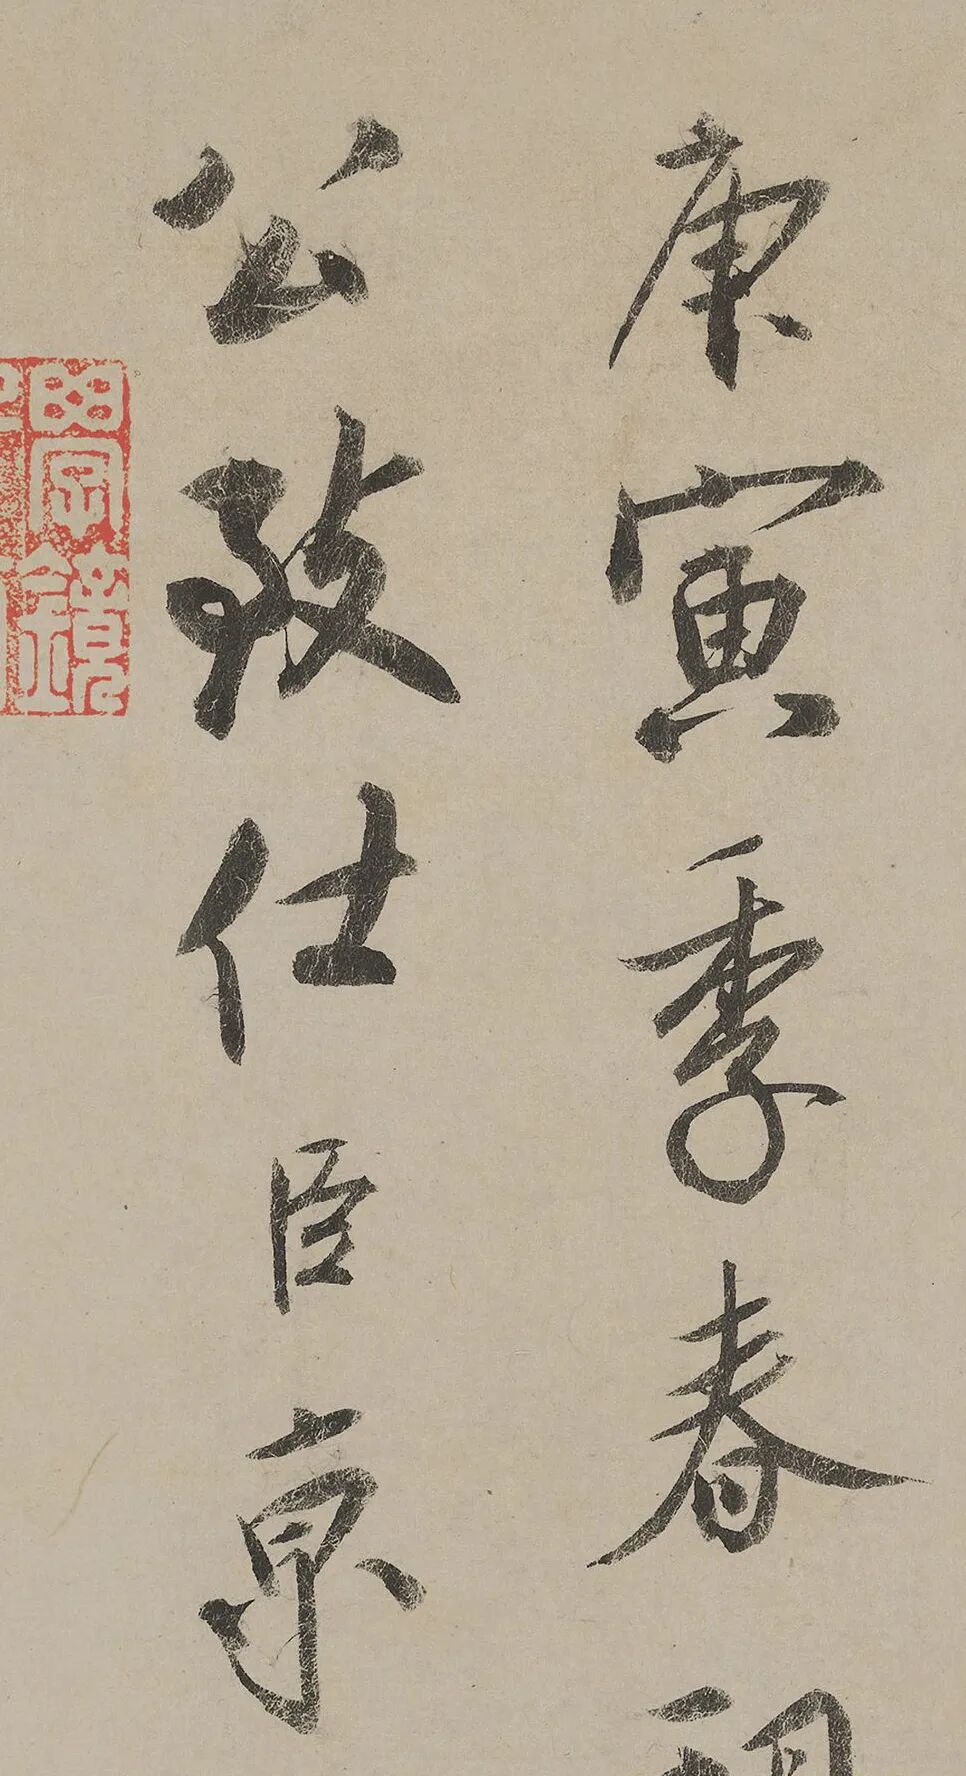 庚寅季春
公致仕臣京